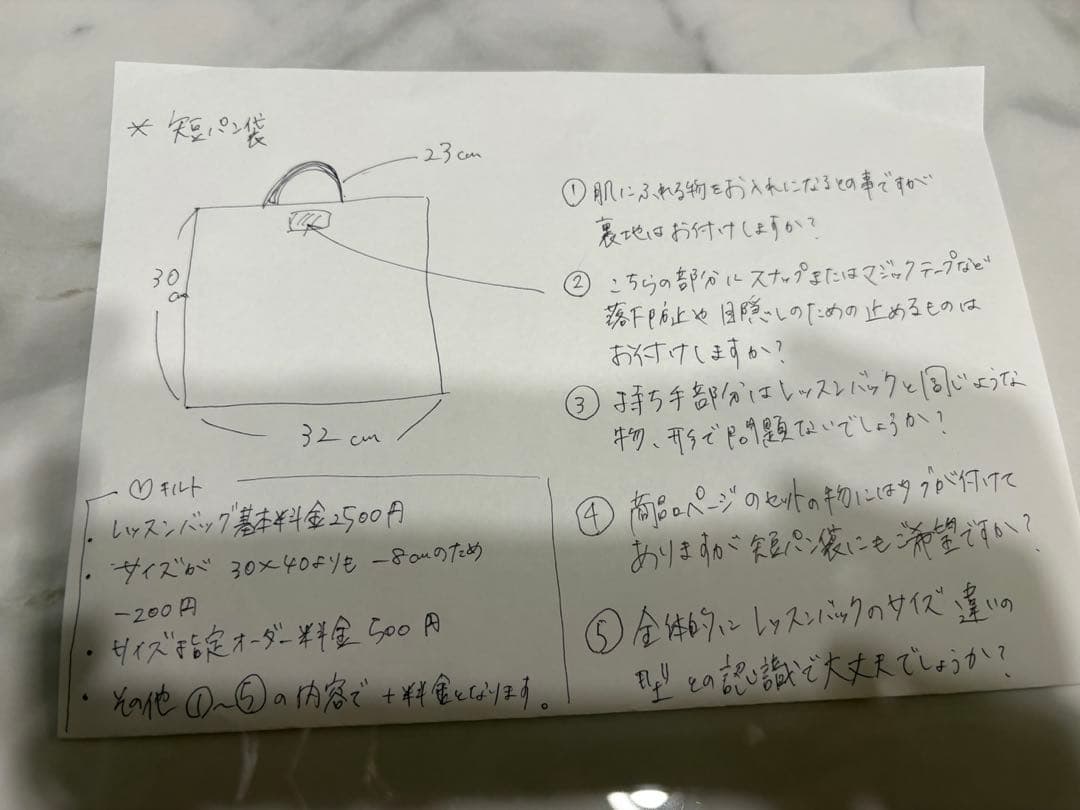 * 短パン袋
23cm
30
cm
32cm
① 肌にふれる物をお入れになるとの事ですが
裏地はお付けしますか?
② こちらの部分にスナップまたはマジックテープなど
落下防止や目隠しのための止めるものは
お付けしますか?
③ 持ち手部分はレッスンバックと同じような
物、形で問題ないでしょうか?
④ 商品ページのセットの物にはタブが付けて
ありますが短パン袋にもご希望ですか?
⑤ 全体的にレッスンバックのサイズ違いの
型との認識で大丈夫でしょうか?
キルト
・レッスンバッグ基本料金2500円
・サイズが 30×40よりも -8cmのため
-200円
・サイズ指定オーダー料金500円
・その他 ①~⑤の内容で +料金となります。